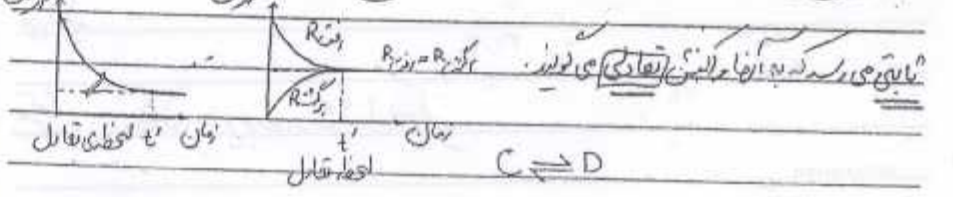 ثابتی می رسد که به آنها واکنش تعادلی می گویند.
R رفت
R برگشت = R رفت
R برگشت
زمان t' لحظه ی تعادل
زمان
t'
لحظه تعادل
C ⇌ D